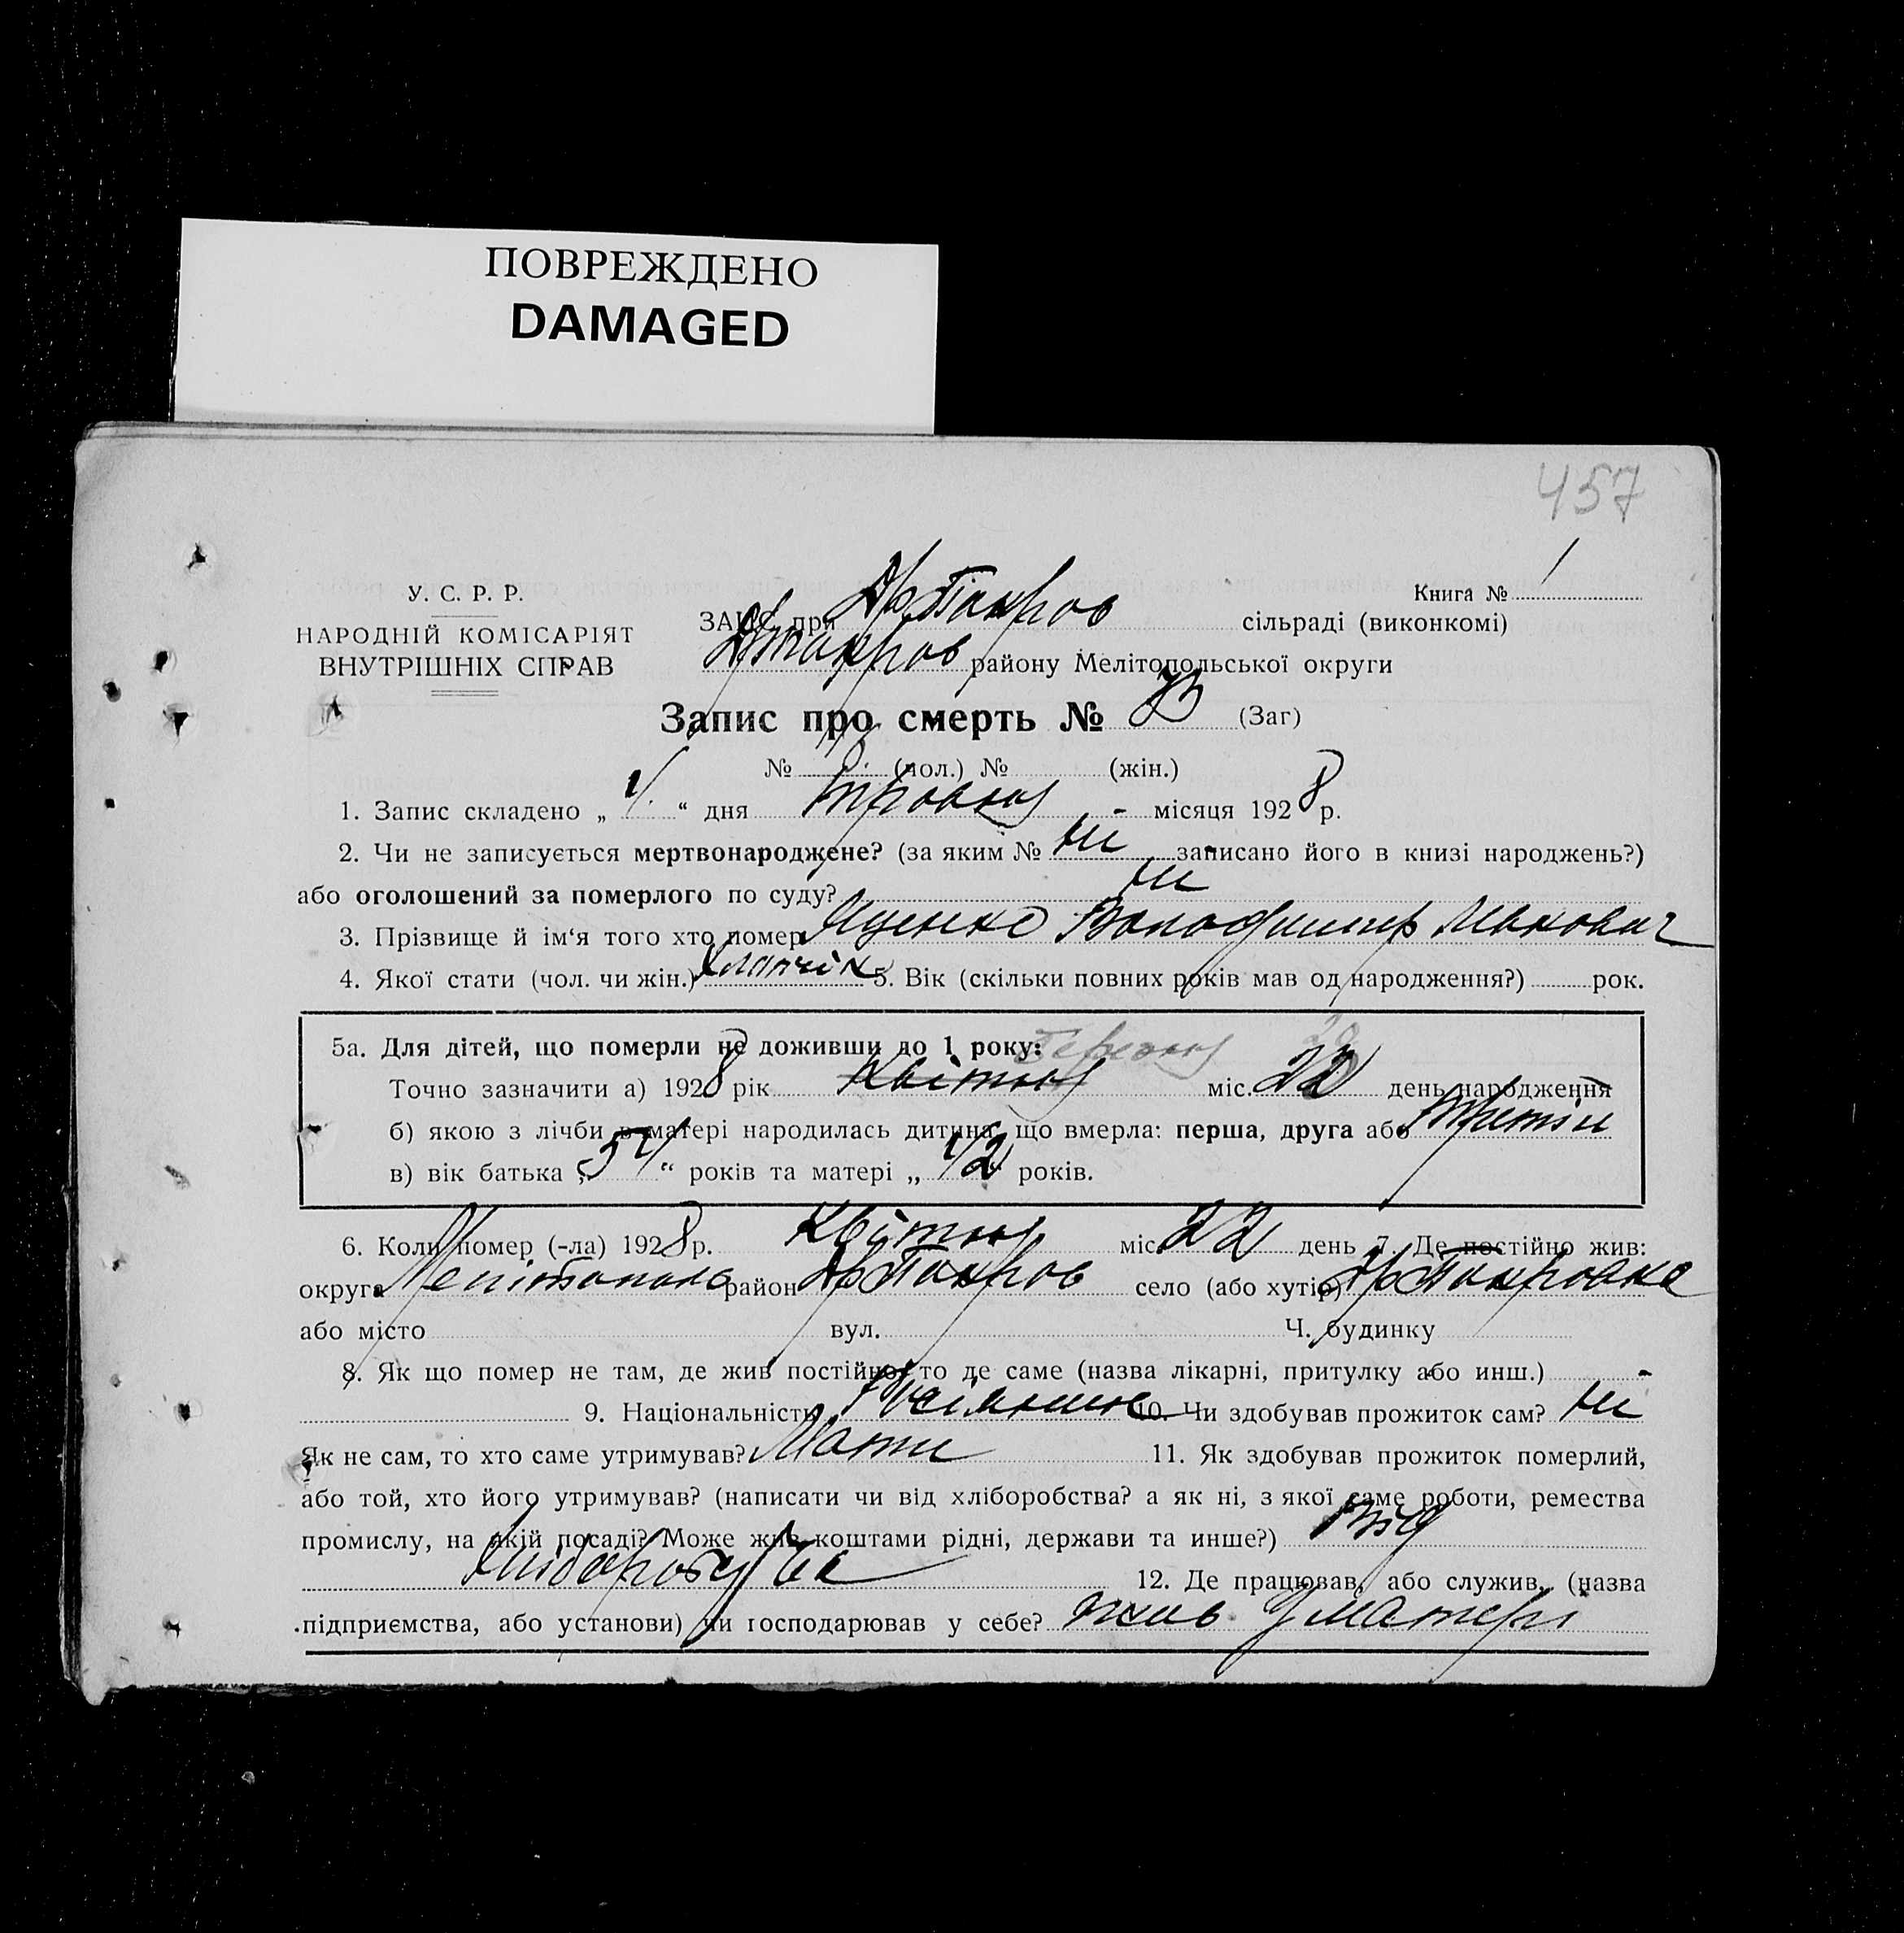 ПОВРЕЖДЕНО
DAMAGED
457
У. С. Р. Р.
НАРОДНІЙ КОМІСАРІЯТ
ВНУТРІШНІХ СПРАВ
Книга № 1
ЗАГС при сільраді (виконкомі)
району Мелітопольської округи
Запис про смерть № (Заг)
№ (чол.) № (жін.)
1. Запис складено „ “ дня травня - місяця 1928 р.
2. Чи не записується мертвонароджене? (за яким № ні записано його в книзі народжень?)
або оголошений за померлого по суду? ні
3. Прізвище й ім‘я того хто помер Яценко Володимир Іванович
4. Якої стати (чол. чи жін.) хлопчік 5. Вік (скільки повних років мав од народження?) рок.
5а. Для дітей, що померли не доживши до 1 року:
Березня
Точно зазначити а) 1928 рік Квітня міс. 22 день народження
б) якою з лічби в матері народилась дитина, що вмерла: перша, друга або третін
в) вік батька „ “ років та матері „ 42 “ років.
6. Коли помер (-ла) 1928 р. Квітня міс. 22 день 7. Де постійно жив:
округа Мелітополь район село (або хутір)
або місто вул. Ч. будинку
8. Як що помер не там, де жив постійно, то де саме (назва лікарні, притулку або инш.) -
9. Національність 10. Чи здобував прожиток сам? ні
Як не сам, то хто саме утримував? Мати 11. Як здобував прожиток померлий,
або той, хто його утримував? (написати чи від хліборобства? а як ні, з якої саме роботи, ремества
промислу, на якій посаді? Може жив коштами рідні, держави та инше?) Від
12. Де працював, або служив, (назва
підприємства, або установи) чи господарював у себе? жив у матері